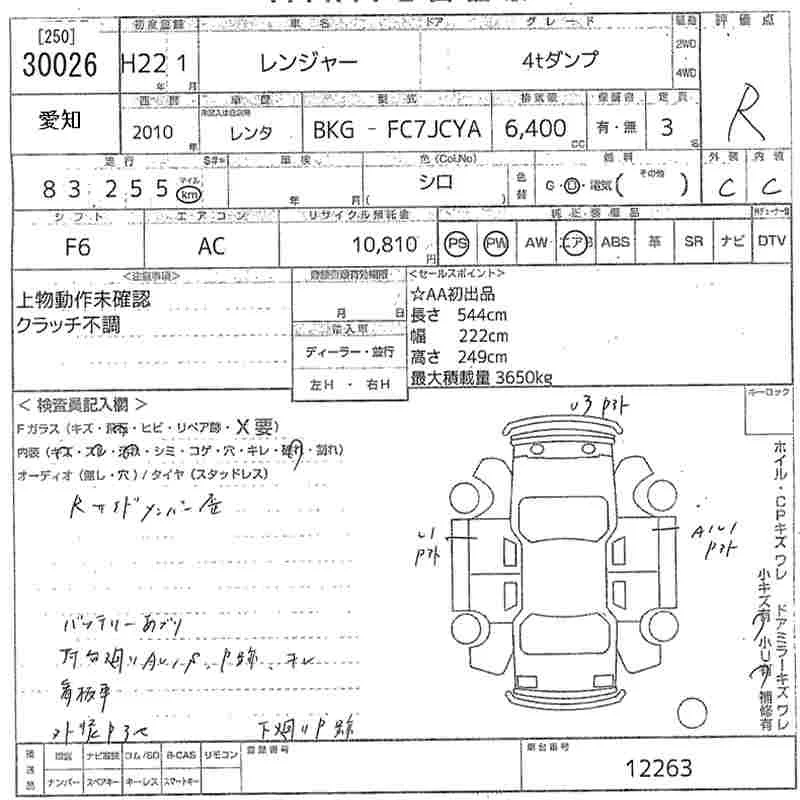 初度登録 車名 ドア グレード 駆動 評価点
[250]
30026 H22 1 レンジャー 4tダンプ 2WD R
年 月 4WD
愛知 車歴 型式 排気量 保証書 定員
2010 年 レンタ BKG - FC7JCYA 6,400 CC 有・無 3 名
走行 車検 色(Col.No) 燃料 外装 内装
83,255 マイル km 年 月 シロ ( ) 色替 G・D・電気( その他 ) C C
シフト エアコン リサイクル預託金 純正装備品
F6 AC 10,810 円 PS PW AW エアB ABS 革 SR ナビ DTV
<注意事項> <セールスポイント>
上物動作未確認 ☆AA初出品
クラッチ不調 月 日 長さ 544cm
輸入車 幅 222cm
ディーラー・並行 高さ 249cm
左H・右H 最大積載量 3650kg
< 検査員記入欄 > キーロック
Fガラス(キズ・飛石・ヒビ・リペア跡・X要)
内装(キズ・スレ・汚れ・シミ・コゲ・穴・キレ・破れ・割れ)
オーディオ(無し・穴)/タイヤ(スタッドレス)
Rサイドメンバー歪
U3
U1
A1U1
バッテリーあがり
荷台廻りAU、P、P跡、キレ
看板車
外装P3セ 下廻りP跡
ホイル・CPキズワレ ドアミラーキズワレ
小キズ有 小U有 補修有
後送品 ナビ ロム/SD B-CAS リモコン 登録番号 車台番号
ナンバー スペアキー キーレス スマートキー 12263